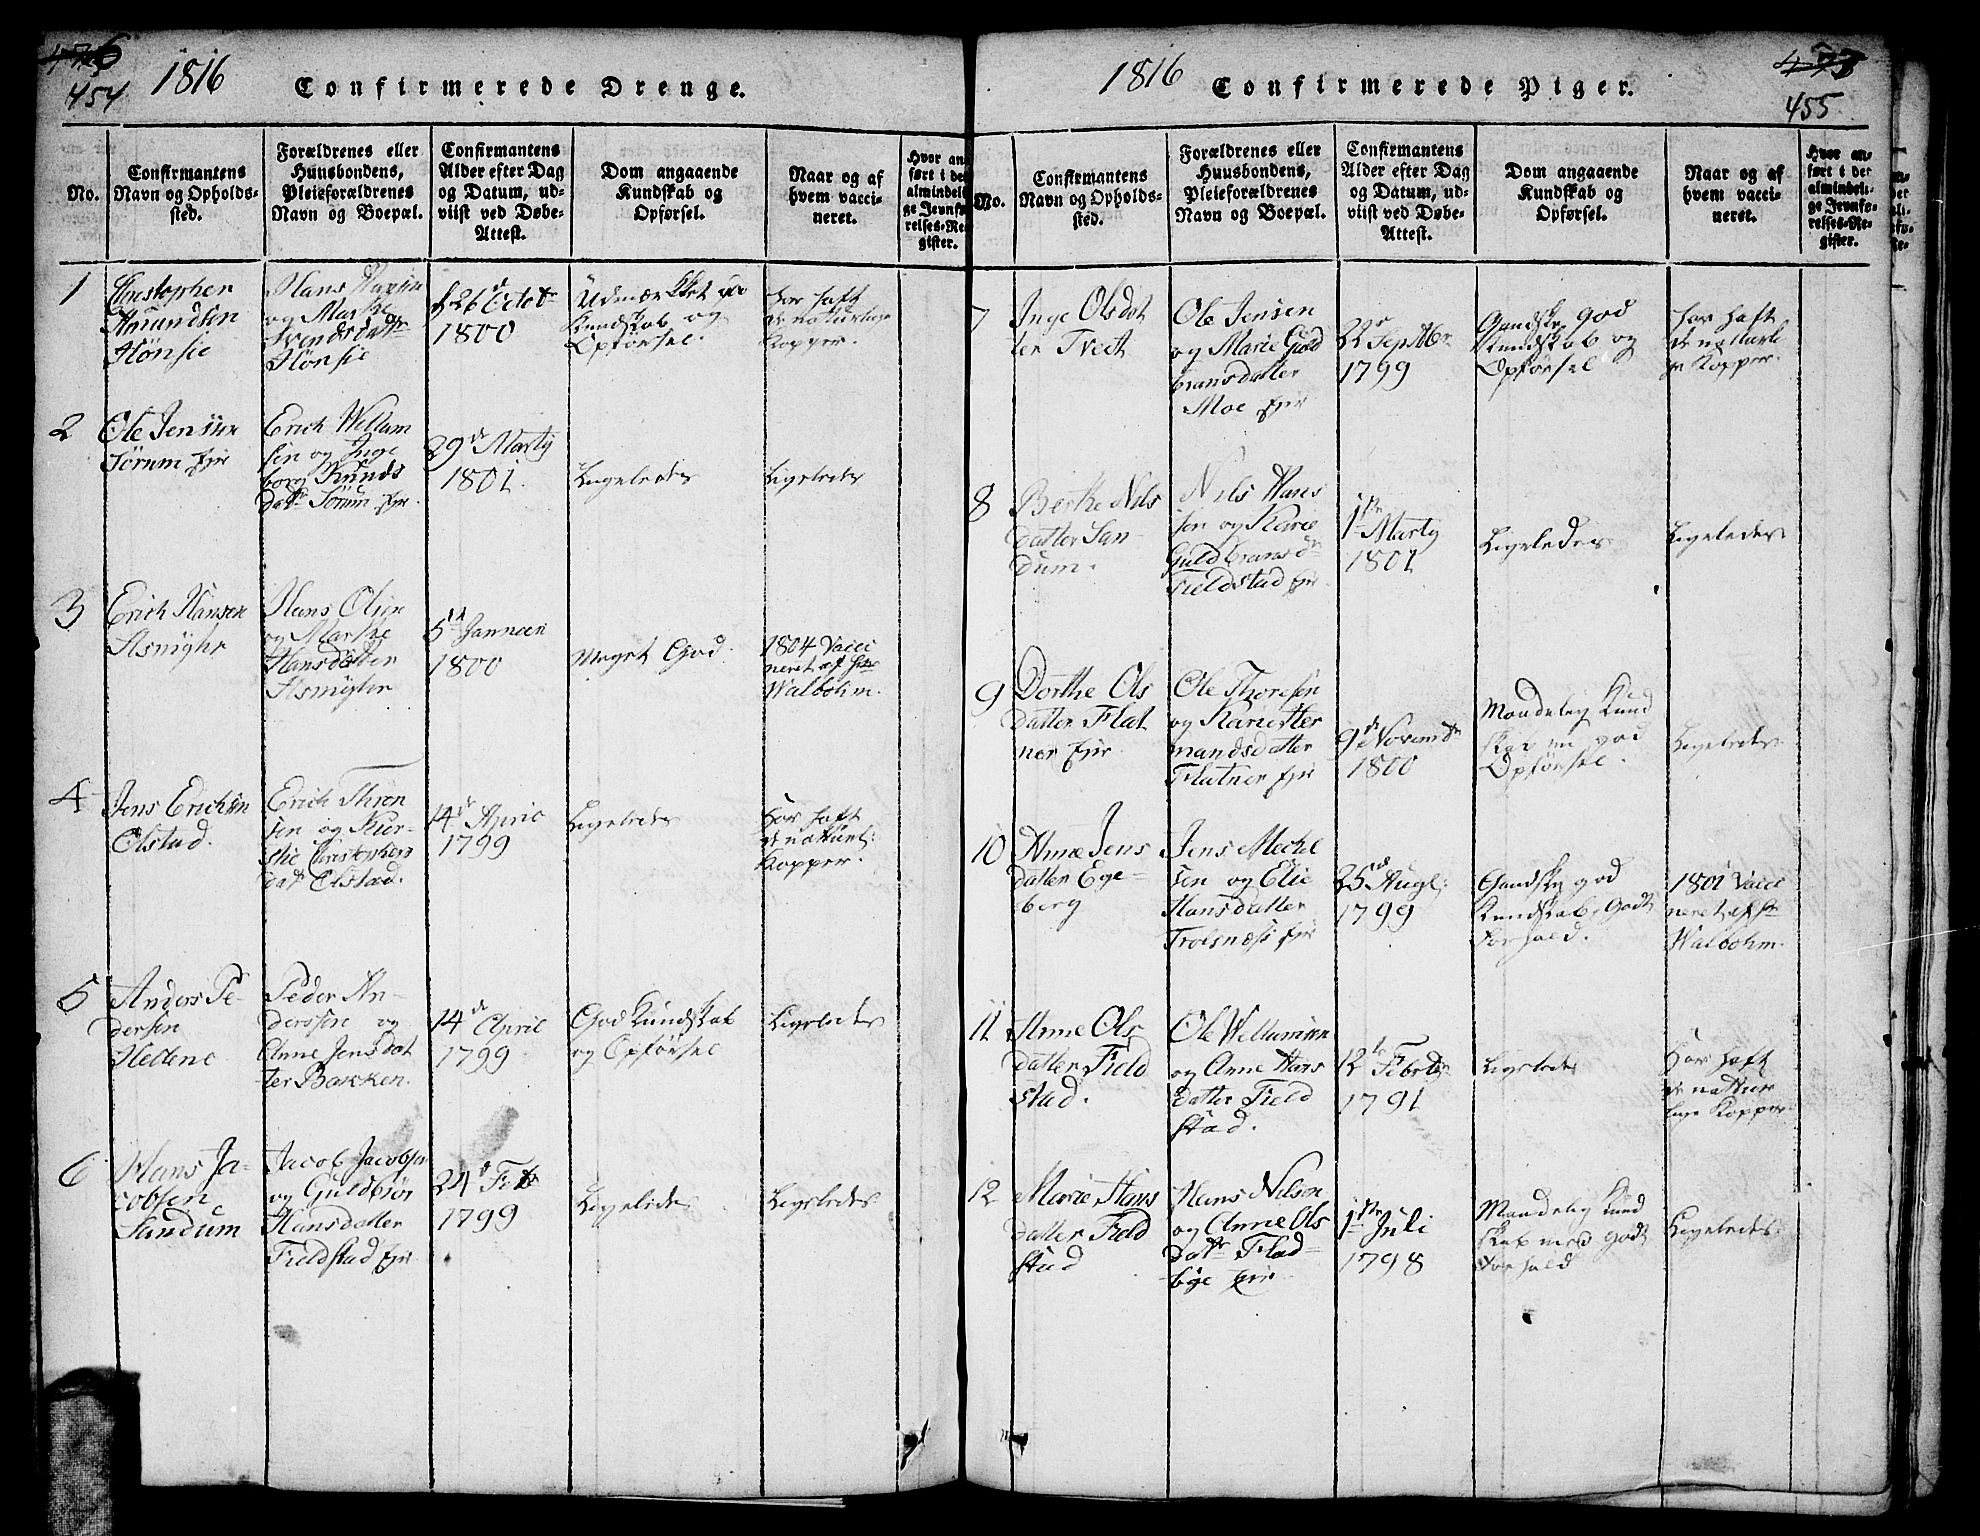 454
1816
Confirmerede Drenge.
No.
Confirmantens
Navn og Opholds-
sted.
Forældrenes eller
Huusbondens,
Pleieforældrenes
Navn og Boepæl.
Confirmantens
Alder efter Dag
og Datum, ud-
viist ved Døbe-
Attest.
Dom angaaende
Kundskab og
Opførsel.
Naar og af
hvem vacci-
neret.
Hvor an
ført i de
almindeli
ge Jevnfø
relses-Re
gister.
1
Christophen
Amundsen
Hönsie
Hans
og Marthe
Svendsdattr
Hönsie
f 26d Octob
1800
Udmærkket god
Kundskab og
Opförsel.
har haft
de naturlige
Kopper.
2
Ole Jensen
Sörum ejer
Erich Wellum
sen og Inge
borg Knuds
datr Sörum ejer.
29de Martÿ
1801.
Ligeledes
Ligeledes
3
Erich Hansen
Asmÿhr
Hans Olsen
og Marthe
Hansdatter
Asmÿhr
5te Januari
1800
Meget God.
1804 Vacci
neret af Hr
Walbohm.
4
Jens Erichsen
Olstad.
Erich Thron
sen og Kier-
stie Christophers
datr Olstad.
14de April
1799
Ligeledes
har haft
de naturl:
Kopper.
5
Anders Pe-
dersen
Hellene
Peder An-
dersen og
Anne Jensdat
ter Bakken.
14de April
1799
God Kundskab
og Opförsel
Ligeledes
6
Hans Ja-
cobsen
Sandum
Jacob Jacobsen
og Guldbrör
Hansdatter
Fieldstad ejer
24d Feb
1799
Ligeledes
Ligeledes
1816
Confirmerede Piger.
455
No.
Confirmantens
Navn og Opholds-
sted.
Forældrenes eller
Huusbondens,
Pleieforældrenes
Navn og Boepæl.
Confirmantens
Alder efter Dag
og Datum, ud-
viist ved Døbe-
Attest.
Dom angaaende
Kundskab og
Opførsel.
Naar og af
hvem vacci-
neret.
Hvor an-
ført i der
almindeli-
ge Jevnfø-
relses-Re-
gister.
7
Inge Olsdat
ter Tveit
Ole Jensen
og Marie Guld
bransdatter
Moe ejer
22de Septbr
1799
Gandske god
Kundskab og
Opförsel
har haft
de naturli
ge Kopper.
8
Berthe Nils
datter San-
dum.
Nils Hans
sen og Karie
Guldbransdr
Fieldstad ejer.
1ste Martÿ
1801
Ligeledes
Ligeledes
9
Dorthe Ols
datter Flat
ner ejer
Ole Thoresön
og Karie Her
mandsdatter
Flatner ejer
9de Novembr
1800
Maadelig Kund
skab en god
Opförsel.
Ligeledes
10
Anne Jens
datter Ege-
berg
Jens Mechel
sen og Elie
Hansdatter
Trolsnæss ejer
25de Aug:
1799
Gandske god
Kundskab, Godt
Forhold.
1801 Vacci
neret af Hr
Walbohm.
11
Anne Ols
datter Field
stad.
Ole Wellumsen
og Anne Hans
datter Field
stad.
12te Febr
1791
Ligeledes
har haft
de nattur
lige Kopper
12
Marie Hans
datter Field
stad
Hans Nilsen
og Anne Ols
datr Flad-
bÿe ejer
1ste Juli
1798
Maadelig Kund
skab med godt
Forhold
Ligeledes.